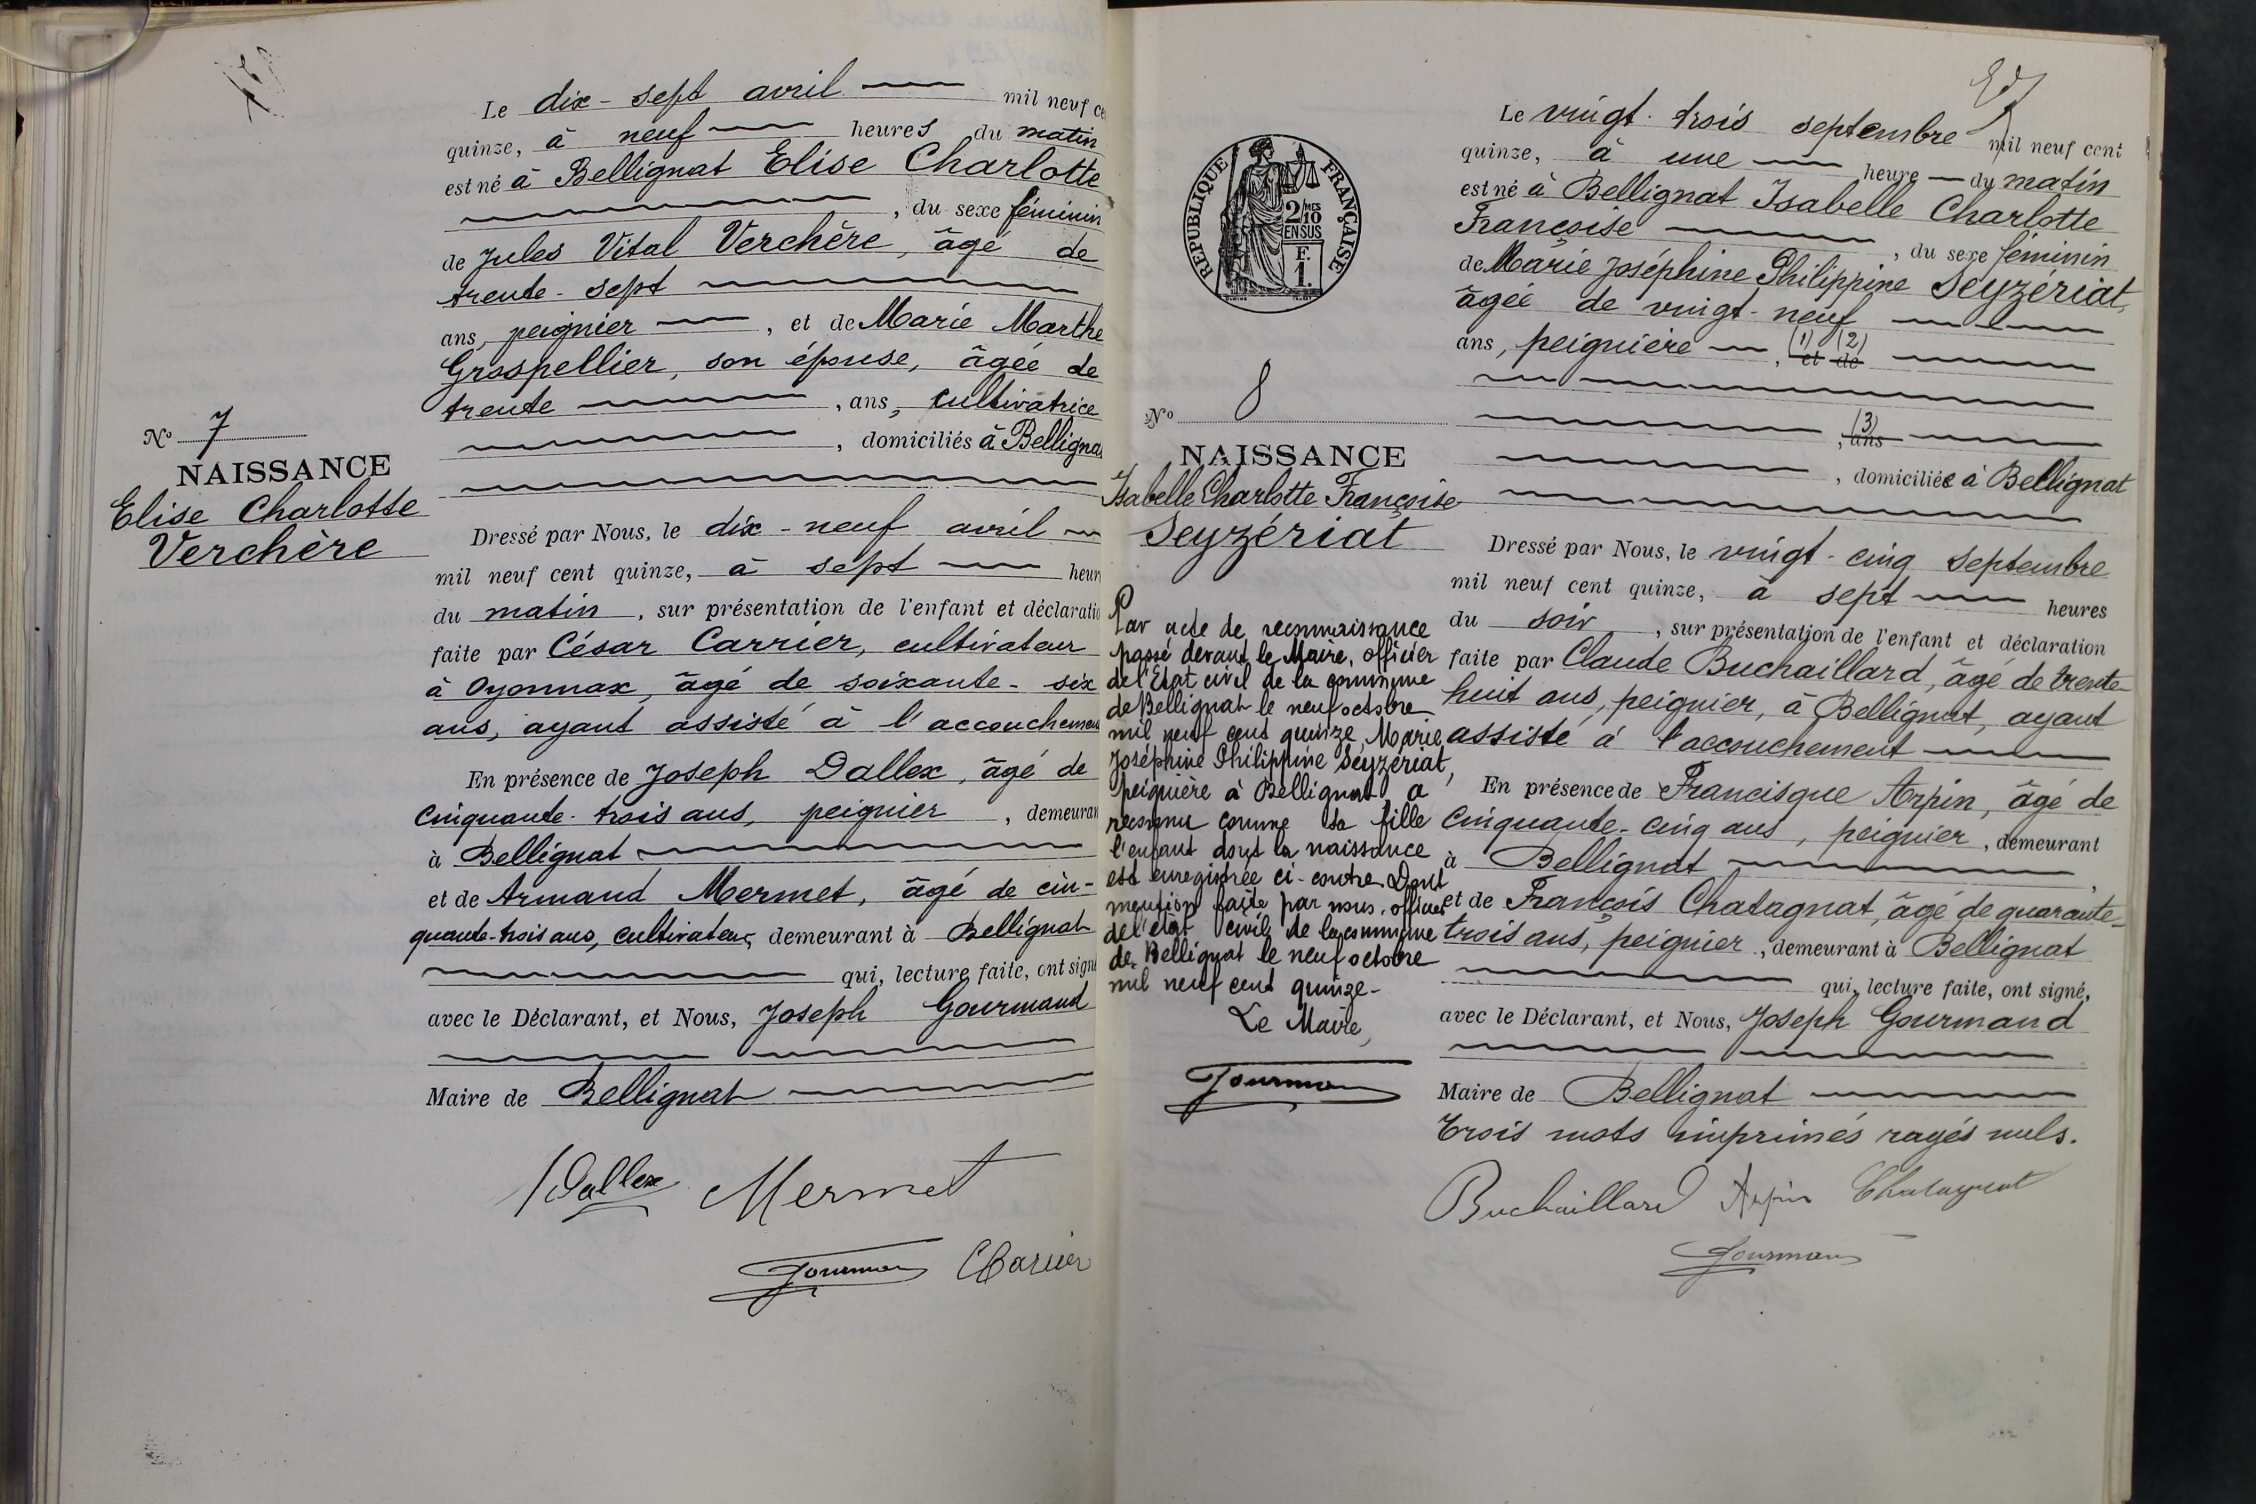 Le dix-sept avril mil neuf ce
quinze, à neuf heures du matin
est né à Bellignat Elise Charlotte
, du sexe féminin
de Jules Vital Verchère, âgé de
trente-sept
ans, peignier, et de Marie Marthe
Grospellier, son épouse, âgée de
trente, ans, cultivatrice
, domiciliés à Bellignat
No 7
NAISSANCE
Elise Charlotte
Verchère
Dressé par Nous, le dix-neuf avril
mil neuf cent quinze, à sept heur
du matin, sur présentation de l'enfant et déclaratio
faite par César Carrier, cultivateur
à Oyonnax, âgé de soixante-six
ans, ayant assisté à l'accouchement
En présence de Joseph Dallex, âgé de
cinquante-trois ans, peignier, demeuran
à Bellignat
et de Armand Mermet, âgé de cin-
quante-trois ans, cultivateur, demeurant à Bellignat
qui, lecture faite, ont signé
avec le Déclarant, et Nous, Joseph Gourmand
Maire de Bellignat
JDallex Mermet
Gourmand CCarrier
REPUBLIQUE FRANÇAISE
2/10MES
EN SUS
F.
1.
No 8
NAISSANCE
Isabelle Charlotte Françoise
Seyzériat
Par acte de reconnaissance
passé devant le Maire, officier
de l'Etat civil de la commune
de Bellignat le neuf octobre
mil neuf cent quinze, Marie
Joséphine Philippine Seyzériat,
peignière à Bellignat a
reconnu comme sa fille
l'enfant dont la naissance
est enregistrée ci-contre. Dont
mention faite par nous, officier
de l'état civil de la commune
de Bellignat le neuf octobre
mil neuf cent quinze-
Le Maire,
Gourmand
Le vingt-trois septembre mil neuf cent
quinze, à une heure du matin
est né à Bellignat Isabelle Charlotte
Françoise, du sexe féminin
de Marie Joséphine Philippine Seyzériat,
âgée de vingt-neuf
ans, peignière, (1) et (2) de
(3)
, ans
, domiciliée à Bellignat
Dressé par Nous, le vingt-cinq septembre
mil neuf cent quinze, à sept heures
du soir, sur présentation de l'enfant et déclaration
faite par Claude Buchaillard, âgé de trente-
huit ans, peignier, à Bellignat, ayant
assisté à l'accouchement
En présence de Francisque Arpin, âgé de
cinquante-cinq ans, peignier, demeurant
à Bellignat,
et de François Chatagnat, âgé de quarante-
trois ans, peignier, demeurant à Bellignat
qui, lecture faite, ont signé,
avec le Déclarant, et Nous, Joseph Gourmand
Maire de Bellignat
Trois mots imprimés rayés nuls.
Buchaillard Arpin Chatagnat
Gourmand